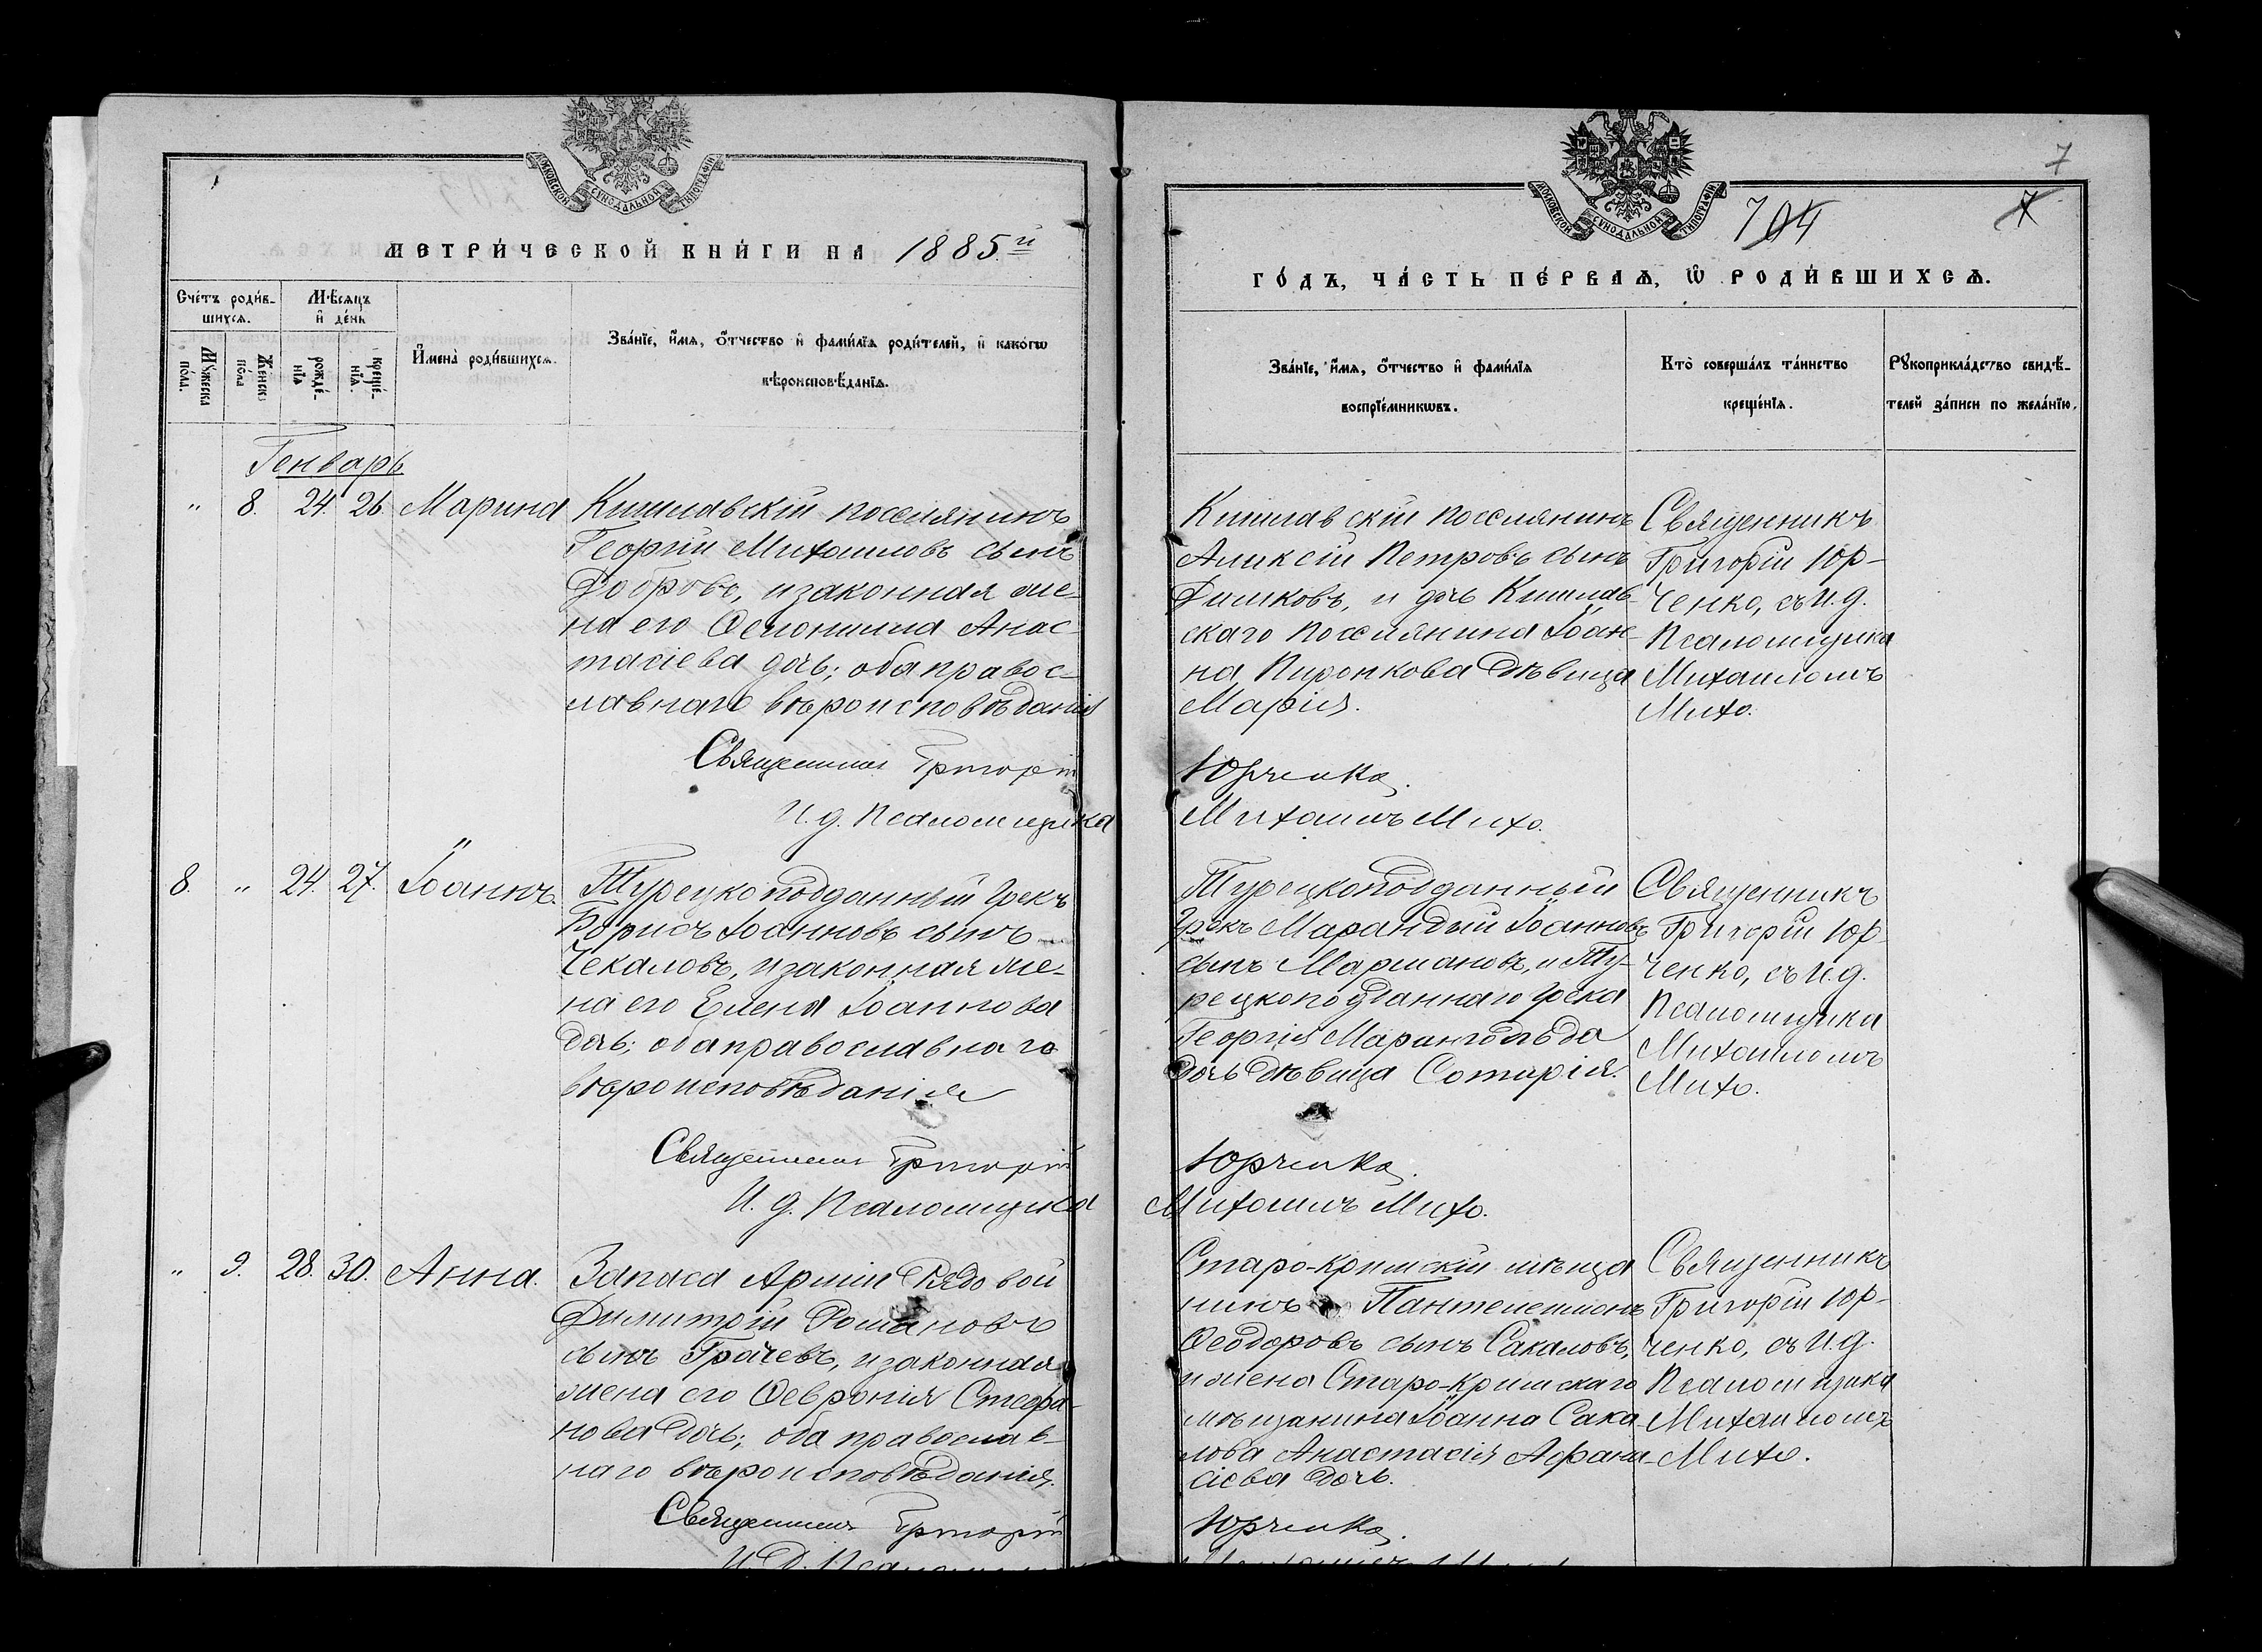 МОСКОВСКОЙ СУНОДАЛЬНОЙ ТИПОГРАФІИ
МЕТРИ́ЧЕСКОЙ КНИ́ГИ НА 1885й
Сче́тъ роди́в-
шихсѧ.
Мѣ́сѧцъ
и҆ де́нь
Мꙋ́жеска
по́ла.
Же́нска
по́ла
рожде́-
нїѧ
креще́-
нїѧ.
И҆мена̀ роди́вшихсѧ.
Зва́нїе, и҆́мѧ, ѻ҆́тчество и҆ фами́лїѧ роди́телей, и҆ како́гѡ
вѣроисповѣ́данїѧ.
Генварь
" 8. 24. 26. Марина
Кишлавскій поселянинъ
Георгій Михаиловъ сынъ
Добровъ, и законная же-
на его Ѳеконимѧ Анас-
тасіева дочь; оба правос-
лавнаго вѣроисповѣданія
Священникъ Григорій
И. д. Псаломщика
8. " 24. 27. Іоаннъ.
Турецкоподданный Грекъ
Борисъ Іоанновъ сынъ
Чекаловъ, и законная же-
на его Елена Іоаннова
дочь; оба православнаго
вѣроисповѣданія
Священникъ Григорій
И. д. Псаломщика
" 9. 28. 30. Анна.
Запаса Арміи Рядовой
Димитрій Романовъ
сынъ Грачевъ, и законная
жена его Ѳевронія Стефа-
нова дочь; оба православ-
наго вѣроисповѣданія.
Священникъ Григорій
И. Д. Псаломщика
7
7
704
МОСКОВСКОЙ СУНОДАЛЬНОЙ ТИПОГРАФІИ
ГО́ДЪ, ЧА́СТЬ ПЕ́РВАѦ, Ѡ҆ РОДИ́ВШИХСѦ.
Зва́нїе, и҆́мѧ, ѻ҆́тчество и҆ фами́лїѧ
воспрїе́мникѡвъ.
Кто̀ соверша́лъ та́инство
креще́нїѧ.
Рꙋкоприкла́дство свидѣ́-
телей за́писи по жела́нїю.
Кишлавскій поселянинъ
Алексій Петровъ сынъ
Димковъ, и дочь Кишлав-
скаго поселянина Іоан-
на Пиронкова дѣвица
Марія.
Священникъ
Григорій Юр-
ченко, съ И. д.
Псаломщика
Михаиломъ
Михо.
Юрченко.
Михаилъ Михо.
Турецкоподданный
Грекъ Марандий Іоанновъ
сынъ Маршановъ, и Ту-
рецкоподданнаго Грека
Георгія
дочь дѣвица Сотирія.
Священникъ
Григорій Юр-
ченко, съ И. д.
Псаломщика
Михаиломъ
Михо.
Юрченко.
Михаилъ Михо.
Старо-Крымскій мѣща
нинъ Пантелеимонъ
Ѳеодоровъ сынъ Сакаловъ,
и жена Старо-Крымскаго
мѣщанина Іоанна Сака
лова Анастасія Афана-
сіева дочь.
Священникъ
Григорій Юр-
ченко, съ И. д.
Псаломщика
Михаиломъ
Михо.
Юрченко.
Михаилъ Михо